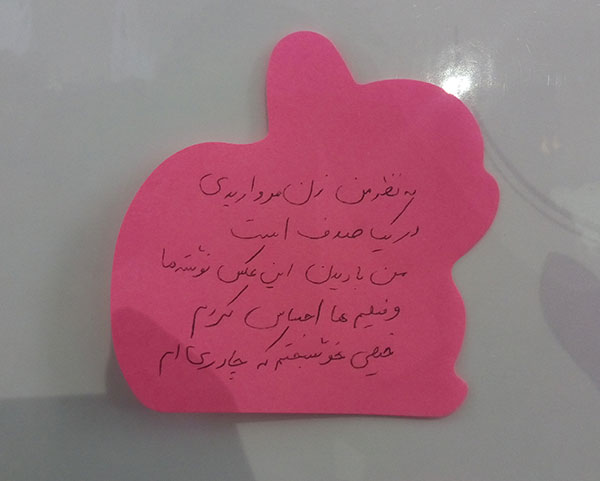 به نظر من زن مرواریدی
در یک صدف است
من با دیدن این عکس نوشته ها
و فیلم ها احساس کردم
خیلی خوشبختم که چادری ام